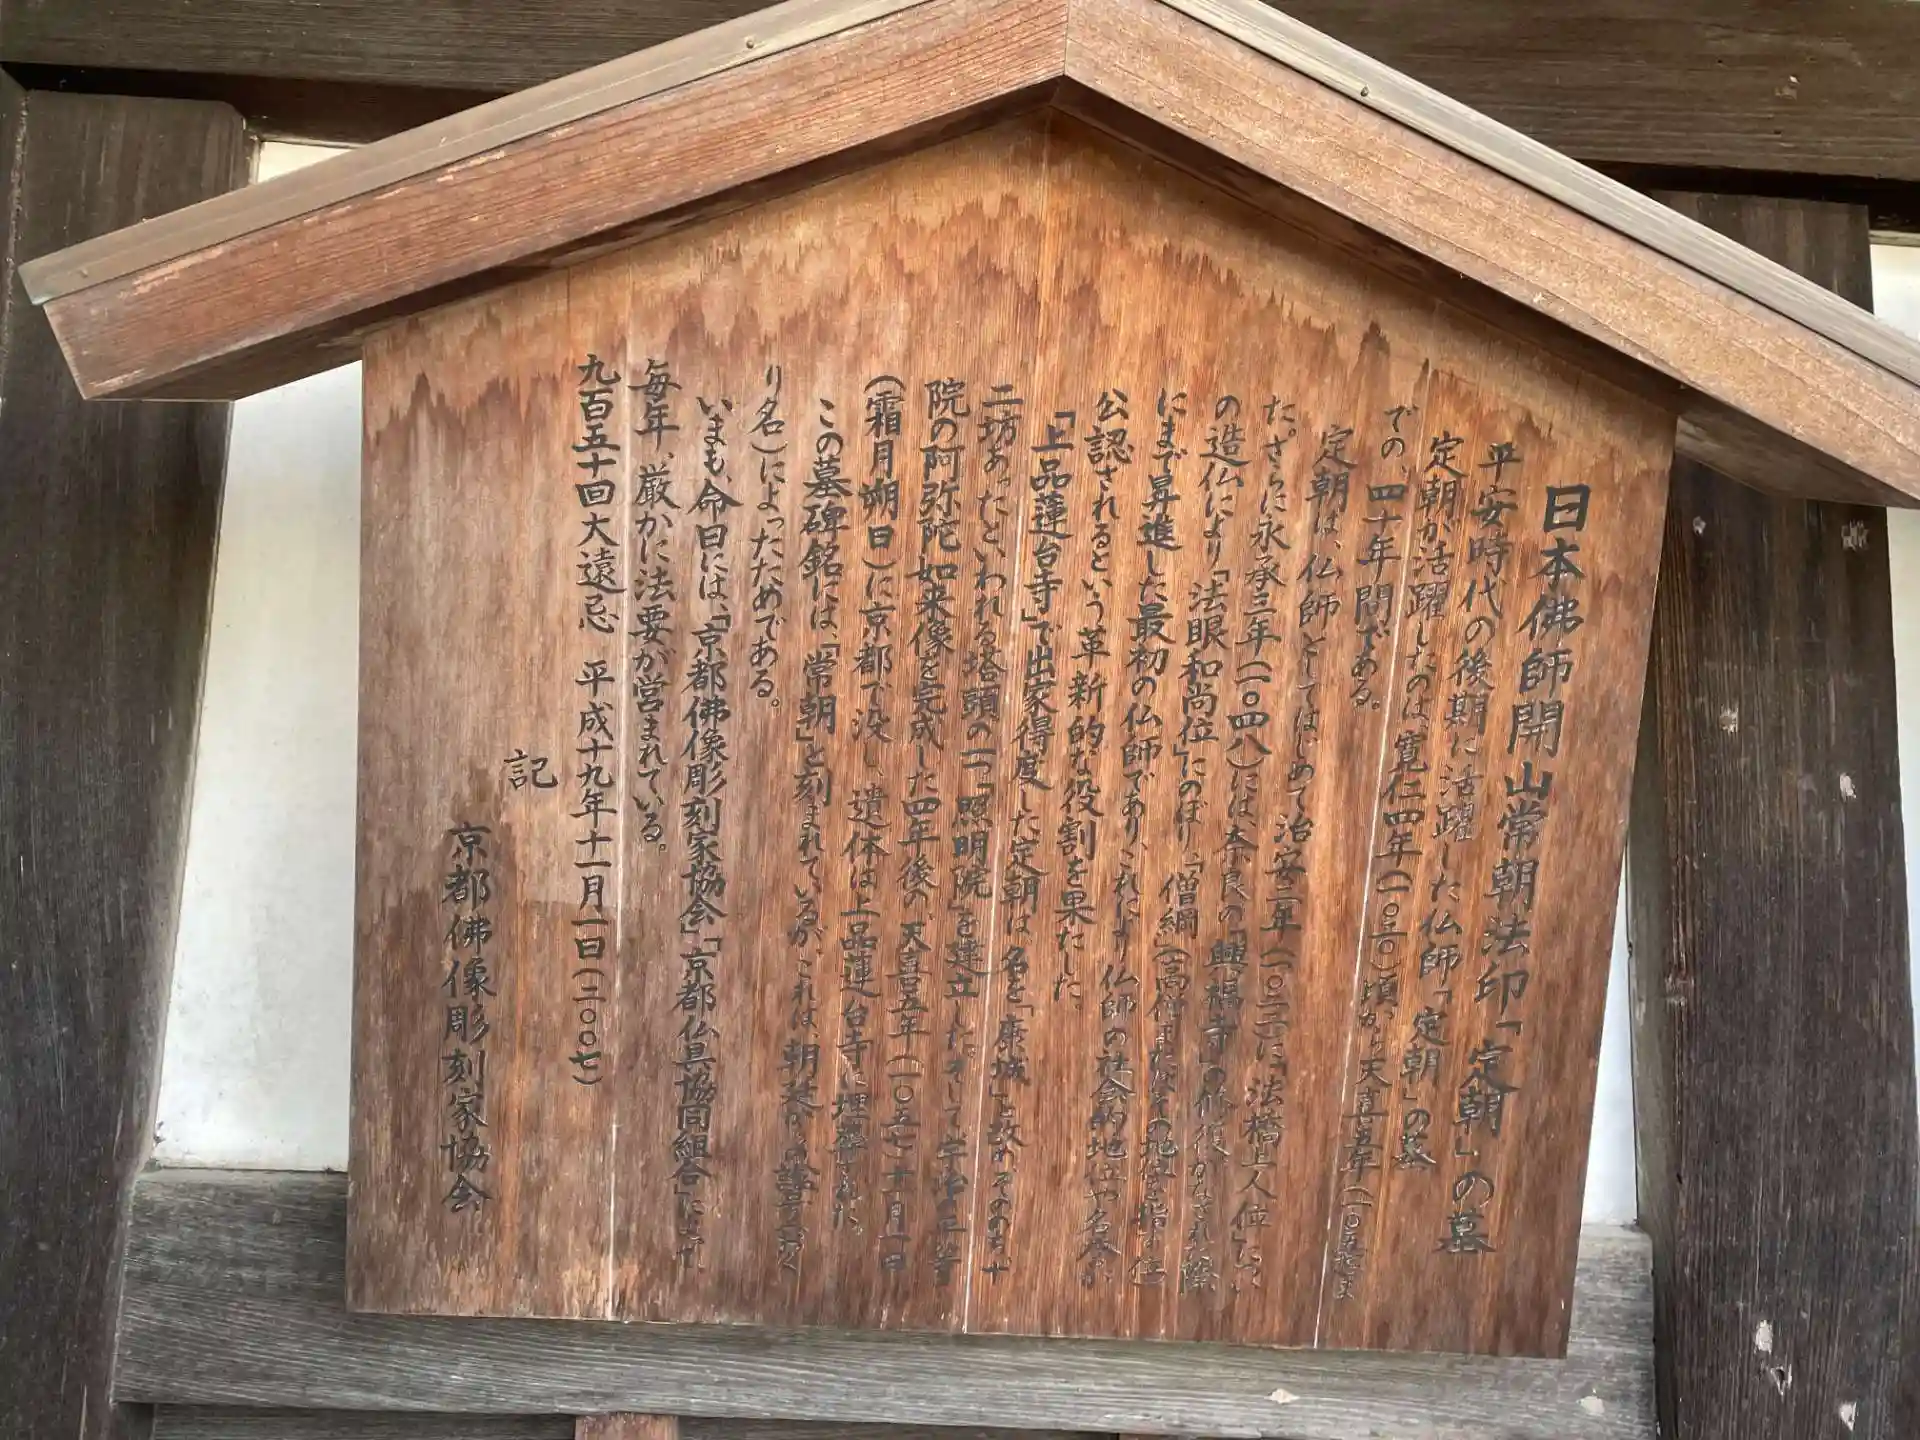 日本佛師開山常朝法印「定朝」の墓
平安時代の後期に活躍した仏師「定朝」の墓
定朝が活躍したのは、寛仁四年(一〇二〇)頃から天喜五年(一〇五七)ま
での、四十年間である。
定朝は、仏師としてはじめて治安二年(一〇二二)に「法橋上人位」につい
た。さらに永承三年(一〇四八)には奈良の「興福寺」の修復がなされた際
の造仏により「法眼和尚位」にのぼり、「僧綱」(高僧またはその地位を指す位)
にまで昇進した最初の仏師であり、これにより仏師の社会的地位や名誉が
公認されるという革新的な役割を果たした。
「上品蓮台寺」で出家得度した定朝は、名を「康城」と改め、そのあと十
二坊あったといわれる塔頭の一つ「照明院」を建立した。そして宇治の平等
院の阿弥陀如来像を完成した四年後の、天喜五年(一〇五七)十一月一日
(霜月朔日)に京都で没し、遺体は上品蓮台寺に埋葬された。
この墓碑銘には、「常朝」と刻まれているが、これは、朝廷からの諱号(おく
り名)によったためである。
いまも、命日には、「京都佛像彫刻家協会」「京都仏具協同組合」によって
毎年、厳かに法要が営まれている。
九百五十回大遠忌 平成十九年十一月一日(二〇〇七)
記
京都佛像彫刻家協会